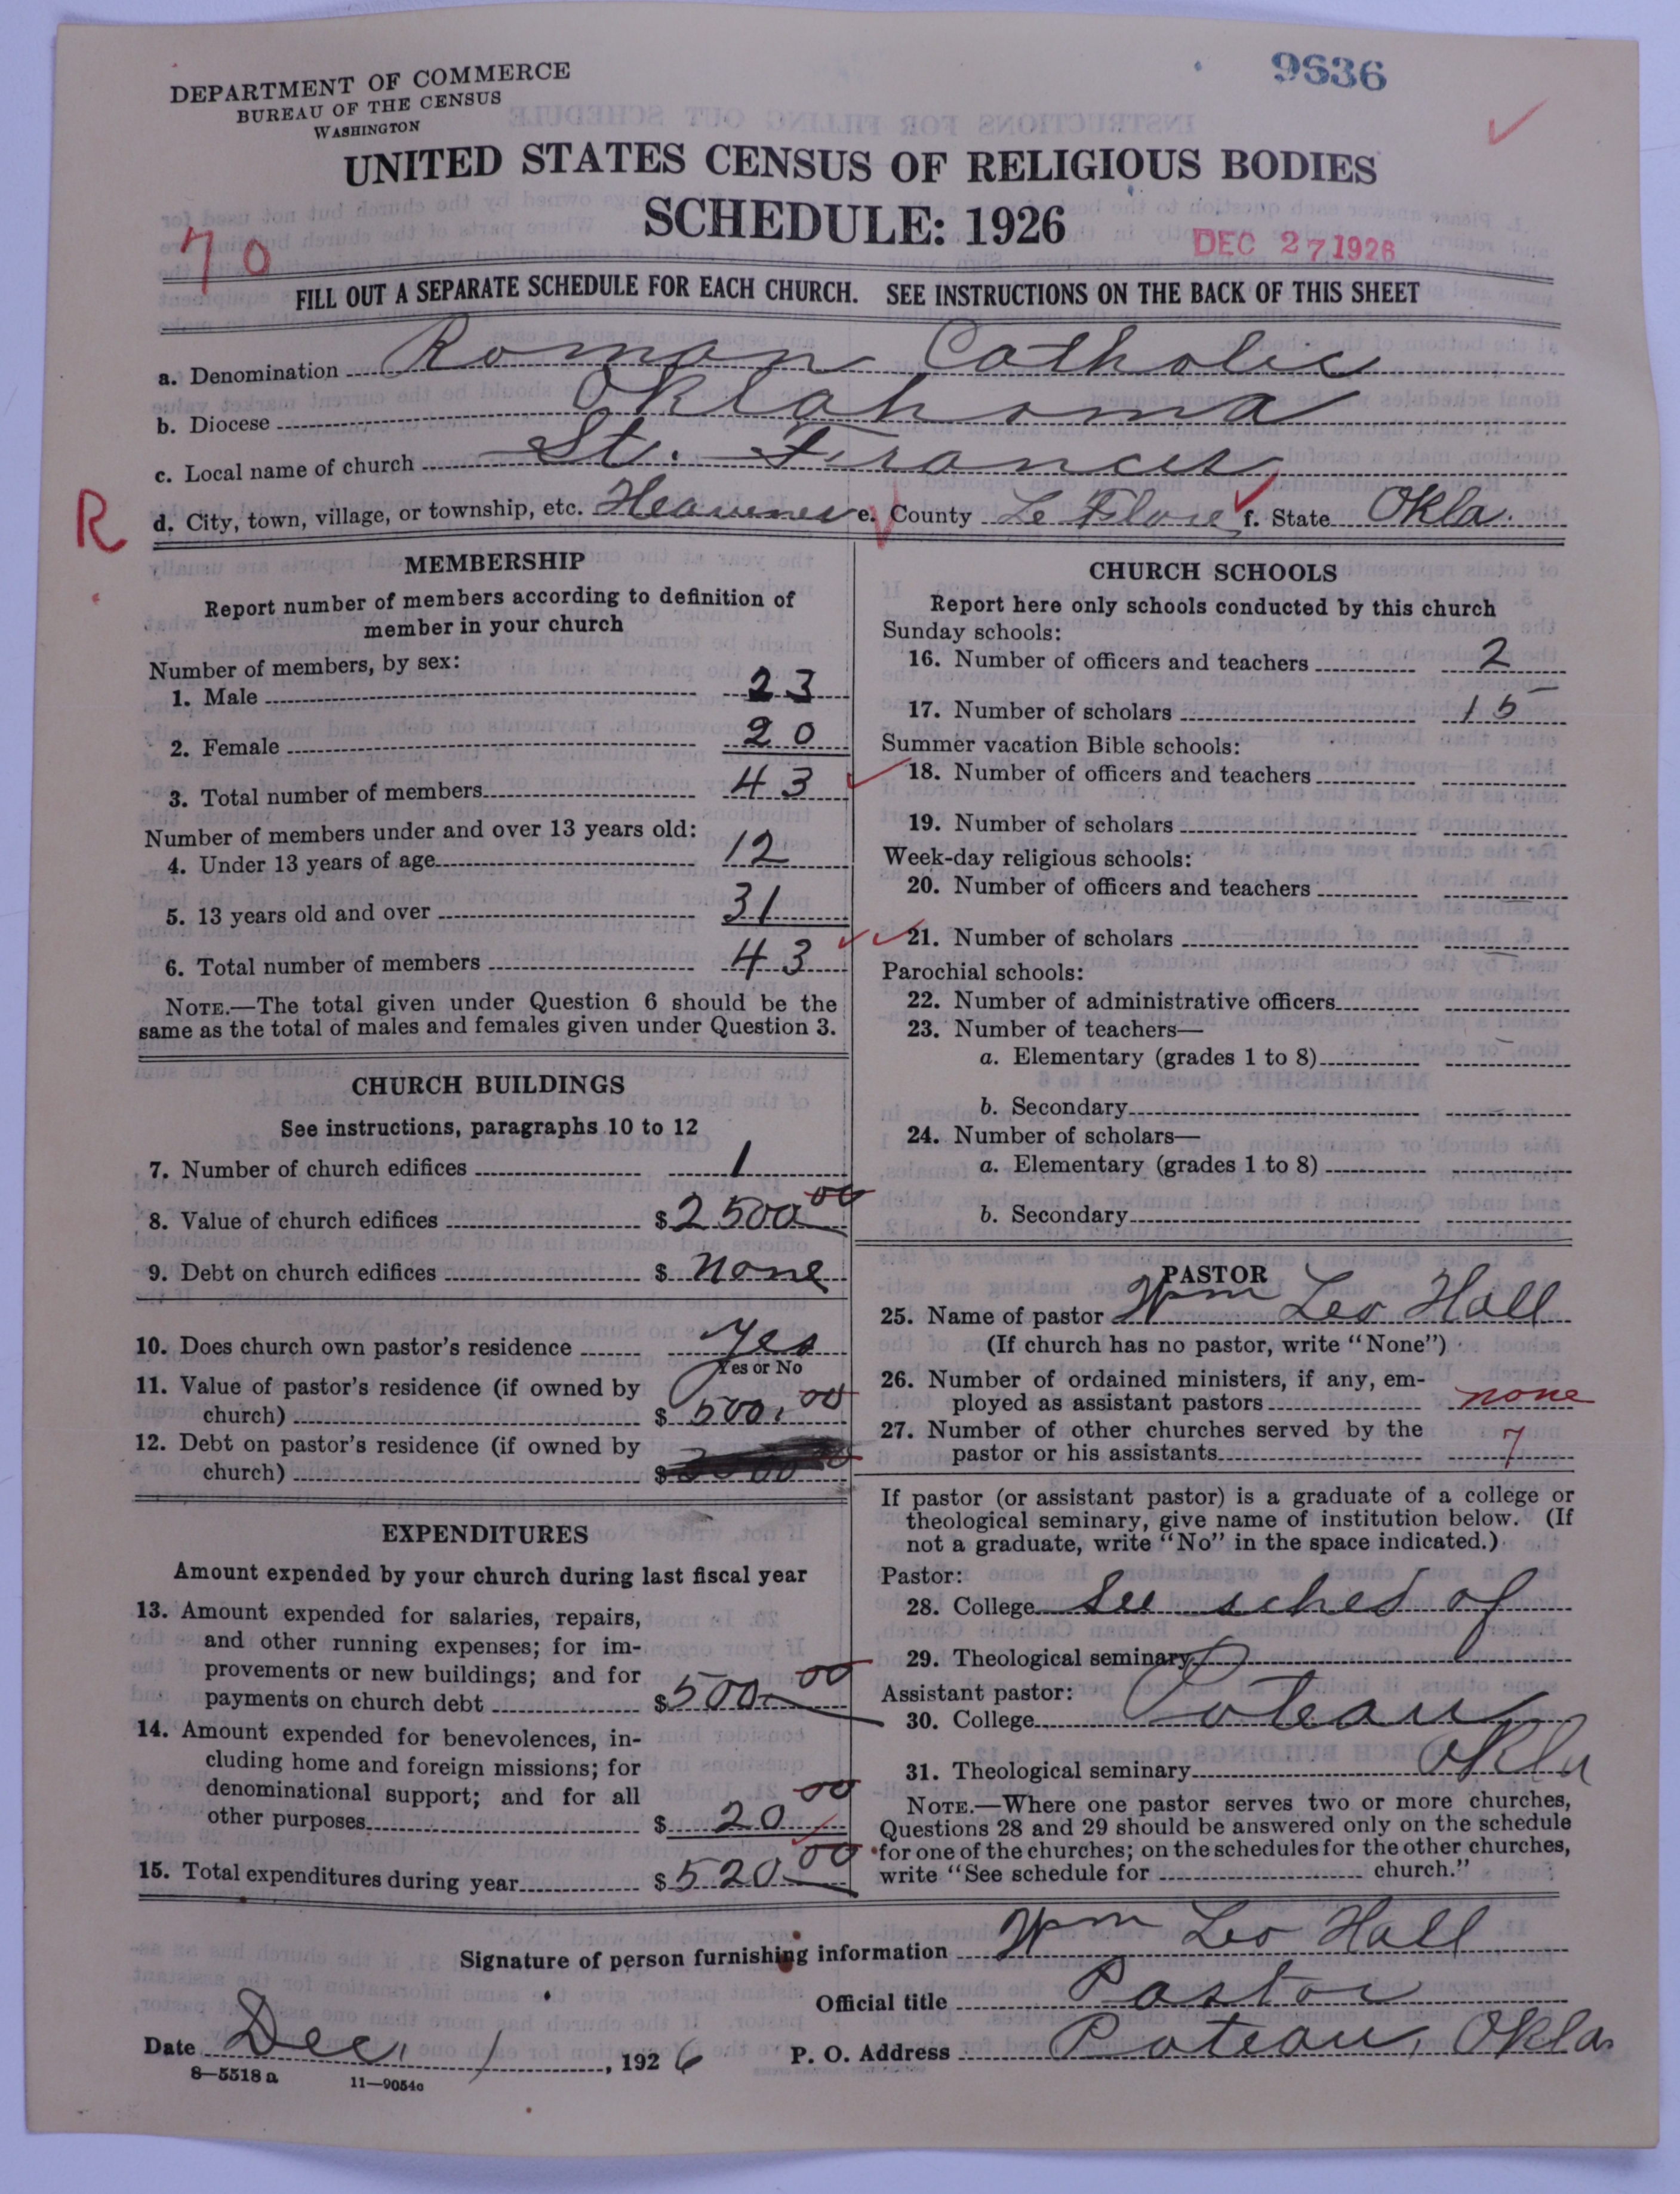 9636
DEPARTMENT OF COMMERCE
BUREAU OF THE CENSUS
WASHINGTON
UNITED STATES CENSUS OF RELIGIOUS BODIES
SCHEDULE: 1926
DEC 27 1926
70
FILL OUT A SEPARATE SCHEDULE FOR EACH CHURCH. SEE INSTRUCTIONS ON THE BACK OF THIS SHEET
a. Denomination Roman Catholic
b. Diocese Oklahoma
c. Local name of church St. Francis
R
d. City, town, village, or township, etc. Heavener e. County Le Flore f. State Okla.
MEMBERSHIP
Report number of members according to definition of
member in your church
Number of members, by sex:
1. Male 23
2. Female 20
3. Total number of members 43
Number of members under and over 13 years old:
4. Under 13 years of age 12
5. 13 years old and over 31
6. Total number of members 43
NOTE.—The total given under Question 6 should be the
same as the total of males and females given under Question 3.
CHURCH BUILDINGS
See instructions, paragraphs 10 to 12
7. Number of church edifices 1
8. Value of church edifices $ 2500 00
9. Debt on church edifices $ None
10. Does church own pastor's residence Yes
Yes or No
11. Value of pastor's residence (if owned by
church) $ 500.00
12. Debt on pastor's residence (if owned by
church) $
EXPENDITURES
Amount expended by your church during last fiscal year
13. Amount expended for salaries, repairs,
and other running expenses; for im-
provements or new buildings; and for
payments on church debt $ 500.00
14. Amount expended for benevolences, in-
cluding home and foreign missions; for
denominational support; and for all
other purposes $ 20 00
15. Total expenditures during year $ 520 00
CHURCH SCHOOLS
Report here only schools conducted by this church
Sunday schools:
16. Number of officers and teachers 2
17. Number of scholars 15
Summer vacation Bible schools:
18. Number of officers and teachers
19. Number of scholars
Week-day religious schools:
20. Number of officers and teachers
21. Number of scholars
Parochial schools:
22. Number of administrative officers
23. Number of teachers—
a. Elementary (grades 1 to 8)
b. Secondary
24. Number of scholars—
a. Elementary (grades 1 to 8)
b. Secondary
PASTOR
25. Name of pastor Wm Leo Hall
(If church has no pastor, write "None")
26. Number of ordained ministers, if any, em-
ployed as assistant pastors none
27. Number of other churches served by the
pastor or his assistants 7
If pastor (or assistant pastor) is a graduate of a college or
theological seminary, give name of institution below. (If
not a graduate, write "No" in the space indicated.)
Pastor:
28. College See sched of
29. Theological seminary
Assistant pastor:
30. College Poteau
31. Theological seminary Okla
NOTE.—Where one pastor serves two or more churches,
Questions 28 and 29 should be answered only on the schedule
for one of the churches; on the schedules for the other churches,
write "See schedule for church."
Signature of person furnishing information Wm Leo Hall
Official title Pastor
Date Dec. 1, 1926 P. O. Address Poteau, Okla.
8—5518 a 11—9054c